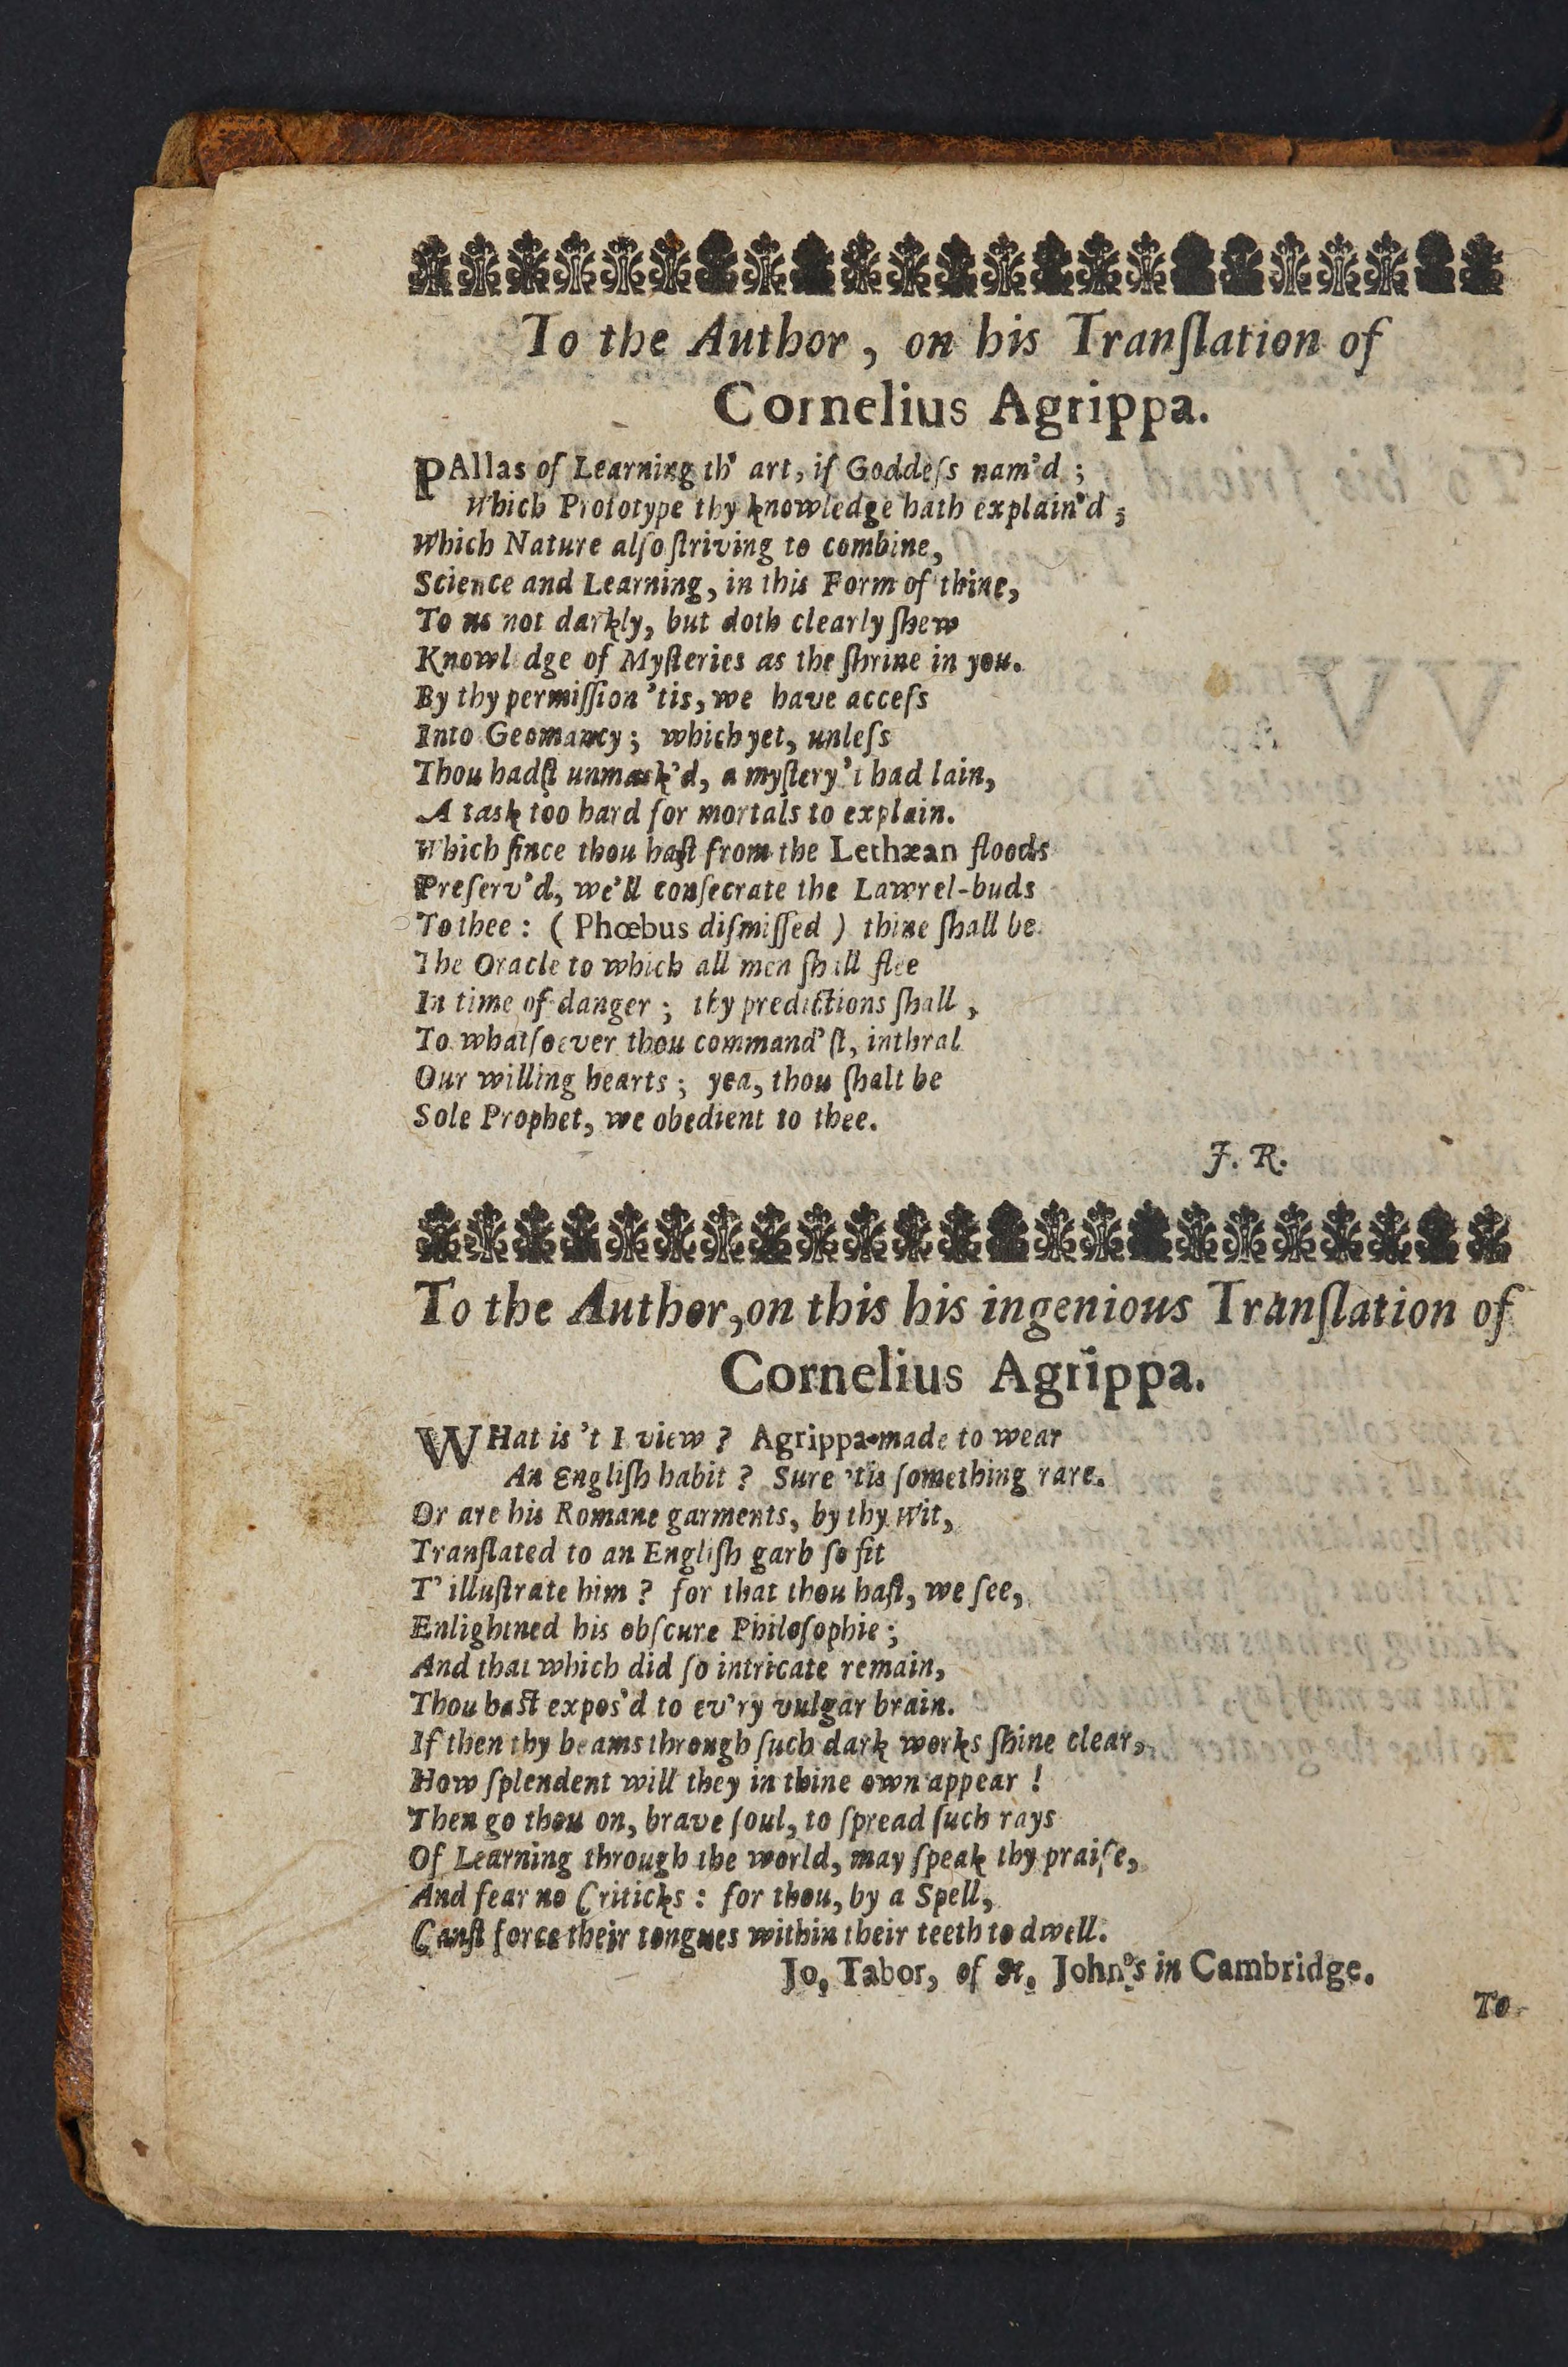 To the Author, on his Tranſlation of
Cornelius Agrippa.
PAllas of Learning th' art, if Goddeſs nam'd;
Which Prototype thy knowledge hath explain'd;
Which Nature alſo ſtriving to combine,
Science and Learning, in this Form of thine,
To us not darkly, but doth clearly ſhew
Knowledge of Myſteries as the ſhrine in you.
By thy permiſſion 'tis, we have acceſs
Into Geomancy; which yet, unleſs
Thou hadſt unmask'd, a myſtery't had lain,
A task too hard for mortals to explain.
Which ſince thou haſt from the Lethæan floods
Preſerv'd, we'll conſecrate the Lawrel-buds
To thee: (Phœbus diſmiſſed) thine ſhall be
The Oracle to which all men ſhall flee
In time of danger; thy predictions ſhall,
To whatſoever thou command'ſt, inthral
Our willing hearts; yea, thou ſhalt be
Sole Prophet, we obedient to thee.
J. R.
To the Author, on this his ingenious Tranſlation of
Cornelius Agrippa.
WHat is 't I view? Agrippa made to wear
An Engliſh habit? Sure 'tis ſomething rare.
Or are his Romane garments, by thy Wit,
Tranſlated to an Engliſh garb ſo fit
T' illuſtrate him? for that thou haſt, we ſee,
Enlightned his obſcure Philoſophie;
And that which did ſo intricate remain,
Thou haſt expos'd to ev'ry vulgar brain.
If then thy beams through ſuch dark works ſhine clear,
How ſplendent will they in thine own appear!
Then go thou on, brave ſoul, to ſpread ſuch rays
Of Learning through the world, may ſpeak thy praiſe,
And fear no Criticks: for thou, by a Spell,
Canſt force their tongues within their teeth to dwell.
Jo. Tabor, of St. John's in Cambridge.
To